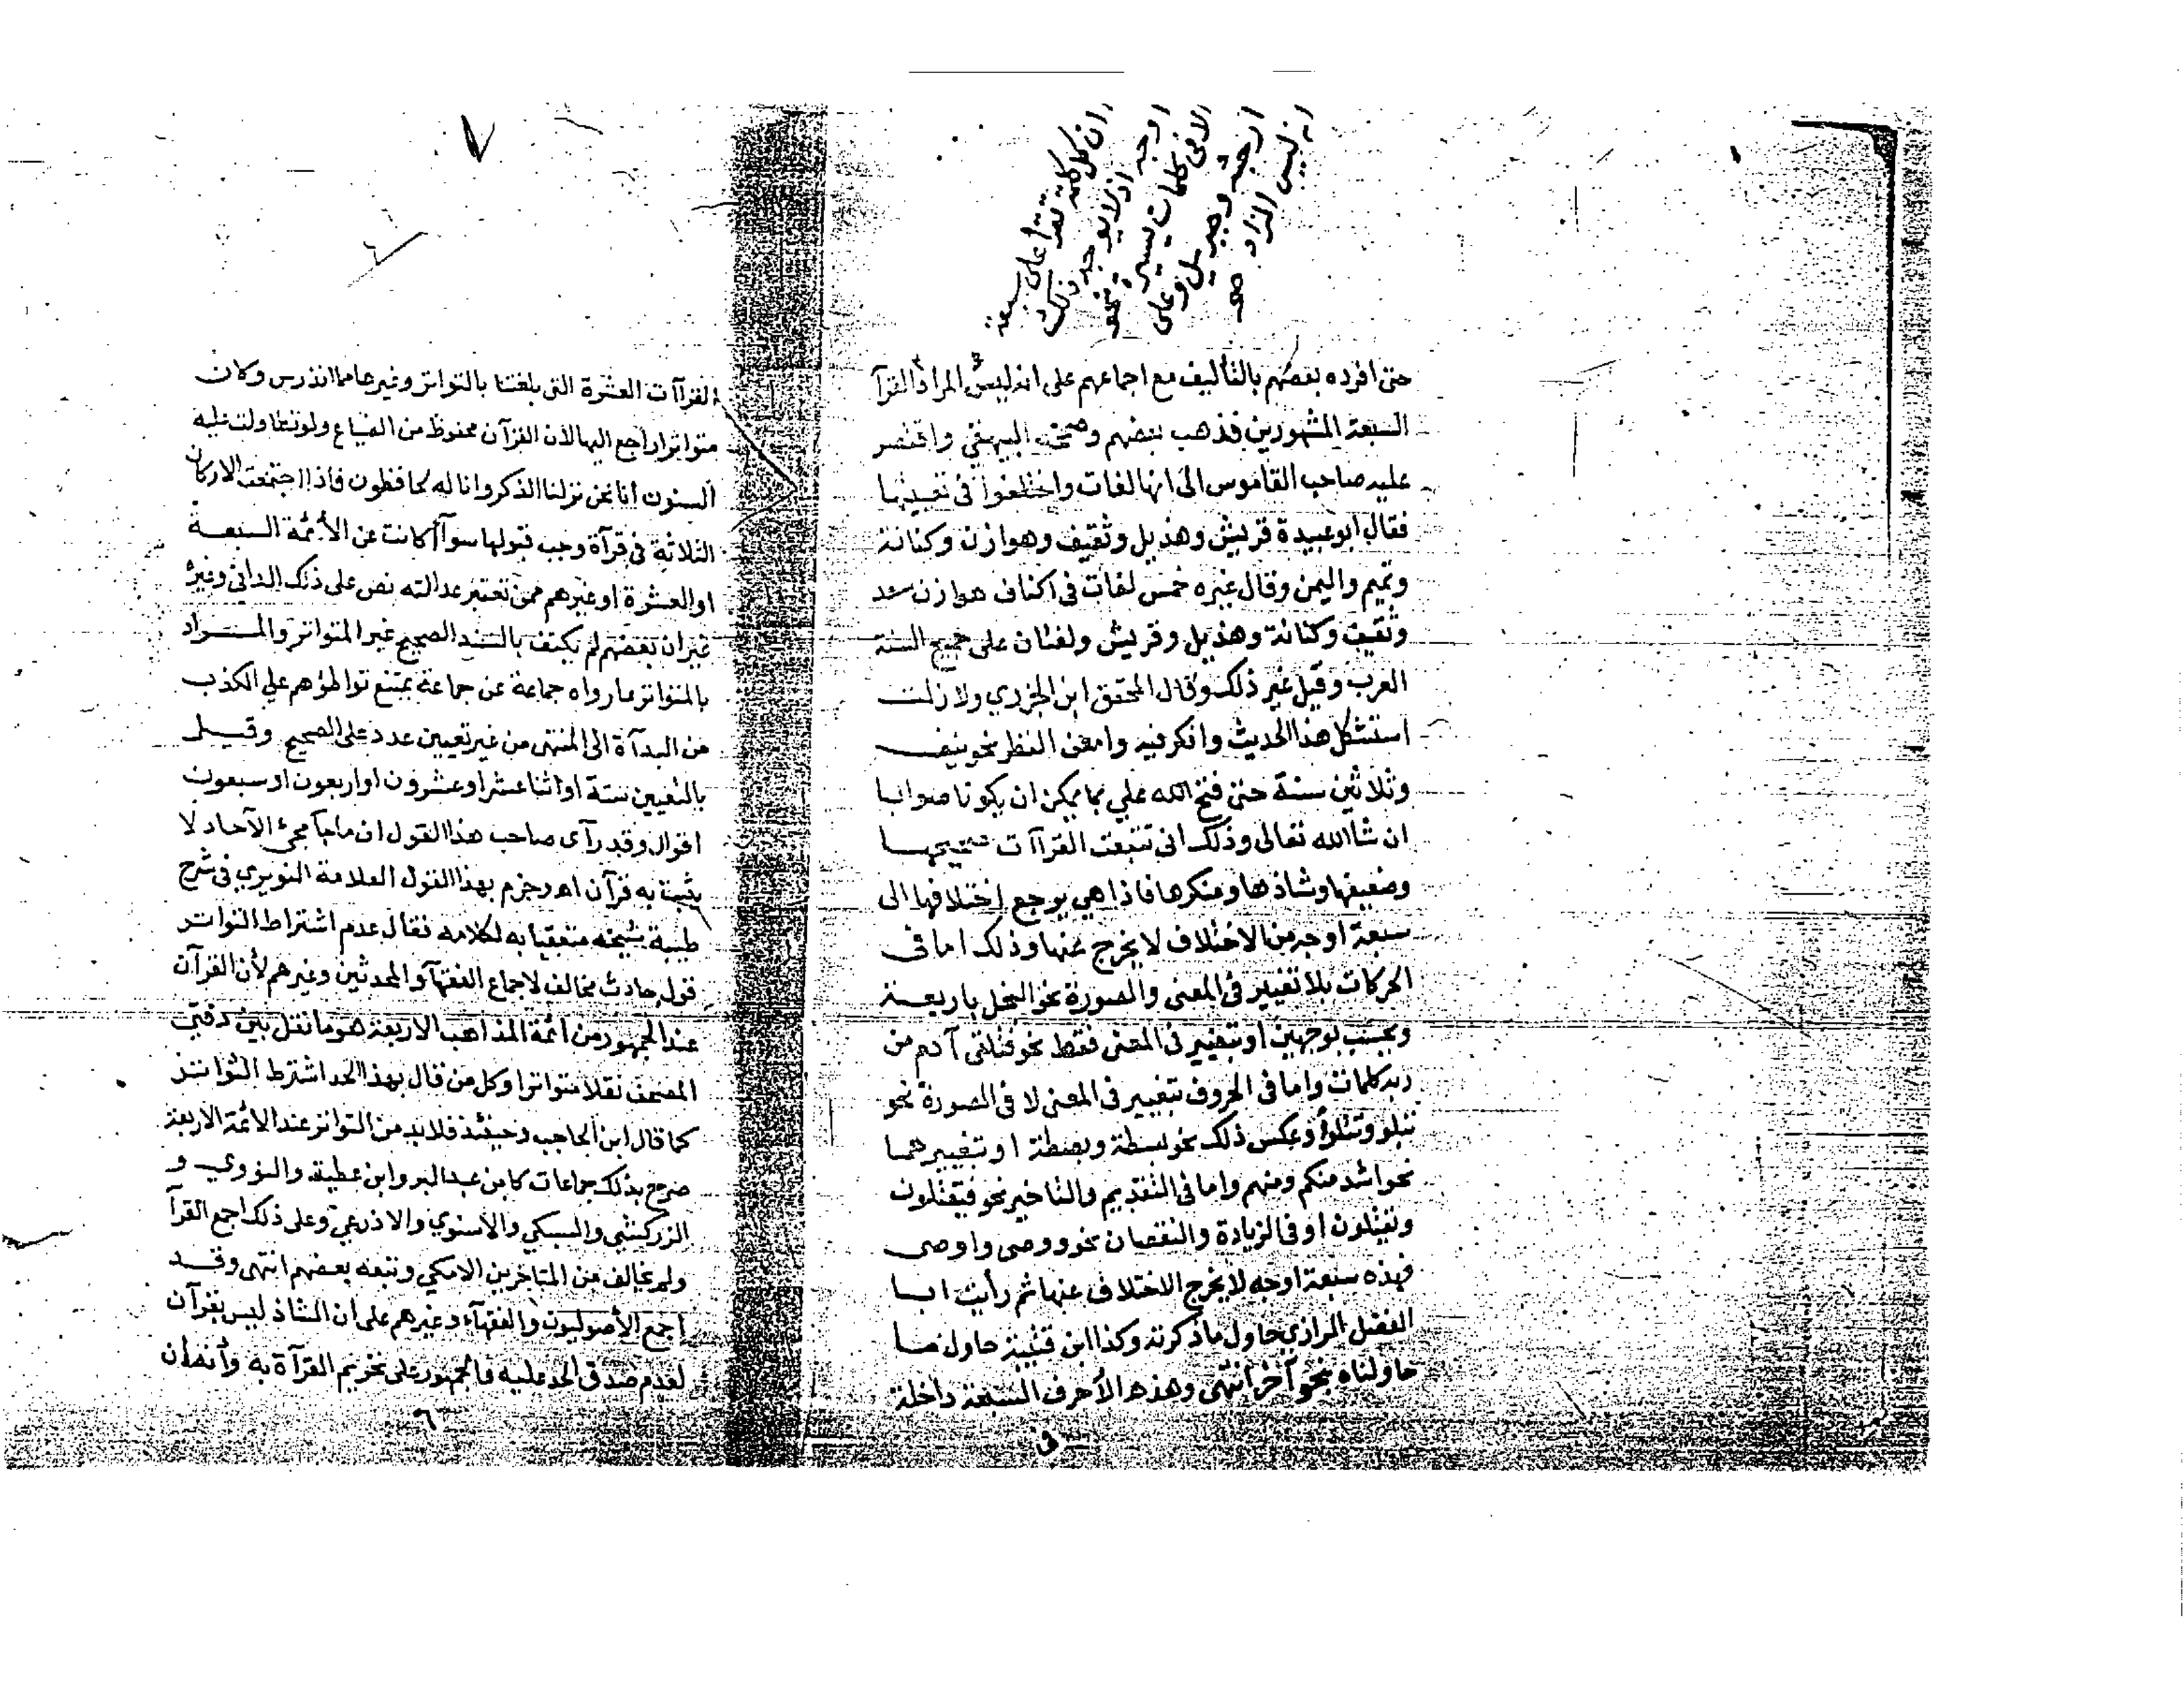 ان كل كلمة تقرأ على سبعة
اوجه اذ لا يوجد ذلك
الا فى كلمات يسيرة نحو
ارجئه وجبريل وعلى
انه ليس المراد صح
حتى افرده بعضهم بالتأليف مع اجماعهم على انه ليس المراد القرآ
السبعة المشهورين فذهب بعضهم وصححه البيهقي واقتصر
عليه صاحب القاموس الى انها لغات واختلفوا فى تعيينها
فقال ابو عبيدة قريش وهذيل وثقيف وهوازن وكنانة
وتميم واليمن وقال غيره خمس لغات فى اكناف هوازن سعد
وثقيف وكنانة وهذيل وقريش ولغتان على جميع السنة
العرب وقيل غير ذلك وقال المحقق ابن الجزري ولا زلت
استشكل هذا الحديث وافكر فيه وامعن النظر نحو نيف
وثلاثين سنة حتى فتح الله علي بما يمكن ان يكونا صوابا
ان شاالله تعالى وذلك انى تتبعت القراآت صحيحها
وضعيفها وشاذها ومنكرها فاذا هي يرجع اختلافها الى
سبعة اوجه من الاختلاف لا يخرج عنها وذلك اما فى
الحركات بلا تغيير فى المعنى والصورة نحو البخل باربعة
ويحسب بوجهين او بتغيير فى المعنى فقط نحو فتلقى آدم من
ربه كلمات واما فى الحروف بتغيير فى المعنى لا فى الصورة نحو
تبلو وتتلو أو عكس ذلك نحو بسطة وبصطة او بتغييرهما
نحو اشد منكم ومنهم واما فى التقديم والتاخير نحو فيقتلون
ويقتلون او فى الزيادة والنقصان نحو ووصى واوصى
فهذه سبعة اوجه لا يخرج الاختلاف عنها ثم رأيت ابا
الفضل الرازي حاول ما ذكرته وكذا ابن قتيبة حاول ما
حاولناه بنحو آخر انتهى وهذه الأحرف السبعة داخلة
فى
٧
القراآت العشرة التى بلغتنا بالتواتر وغيرها مما اندرس وكان
متواترا راجع اليها لان القرآن محفوظ من الضياع ولو تطاولت عليه
السنون انا نحن نزلنا الذكر وانا له لحافظون فاذا اجتمعت الاركان
الثلاثة فى قرآة وجب قبولها سوآ كانت عن الأئمة السبعة
او العشرة او غيرهم ممن تعتبر عدالته نص على ذلك الدانى وغيره
غير ان بعضهم لم يكتف بالسند الصحيح غير المتواتر والمراد
بالمتواتر ما رواه جماعة عن جماعة يمتنع تواطؤهم على الكذب
من البدآة الى المنتهى من غير تعيين عدد على الصحيح وقيل
بالتعيين ستة او اثنا عشر او عشرون او اربعون او سبعون
اقوال وقد رآى صاحب هذا القول ان ما جآ مجئ الآحاد لا
يثبت به قرآن اه وجزم بهذا القول العلامة النويري فى شرح
طيبة شيخه متعقبا به لكلامه فقال عدم اشتراط التواتر
قول حادث مخالف لاجماع الفقهآ والمحدثين وغيرهم لأن القرآن
عند الجمهور من ائمة المذاهب الاربعة هو ما نقل بين دفتي
المصحف نقلا متواترا وكل من قال بهذا الحد اشترط التواتر
كما قال ابن الحاجب وحينئذ فلا بد من التواتر عند الائمة الاربعة
صرح بذلك جماعات كابن عبد البر وابن عطية والنووي و
الزركشي والسبكي والاسنوي والاذرعي وعلى ذلك اجمع القرآ
ولم يخالف من المتاخرين الا مكي وتبعه بعضهم انتهى وقد
اجمع الأصوليون والفقهآء وغيرهم على ان الشاذ ليس بقرآن
لعدم صدق الحد عليه فالجمهور على تحريم القرآة به وأنه ان
٦